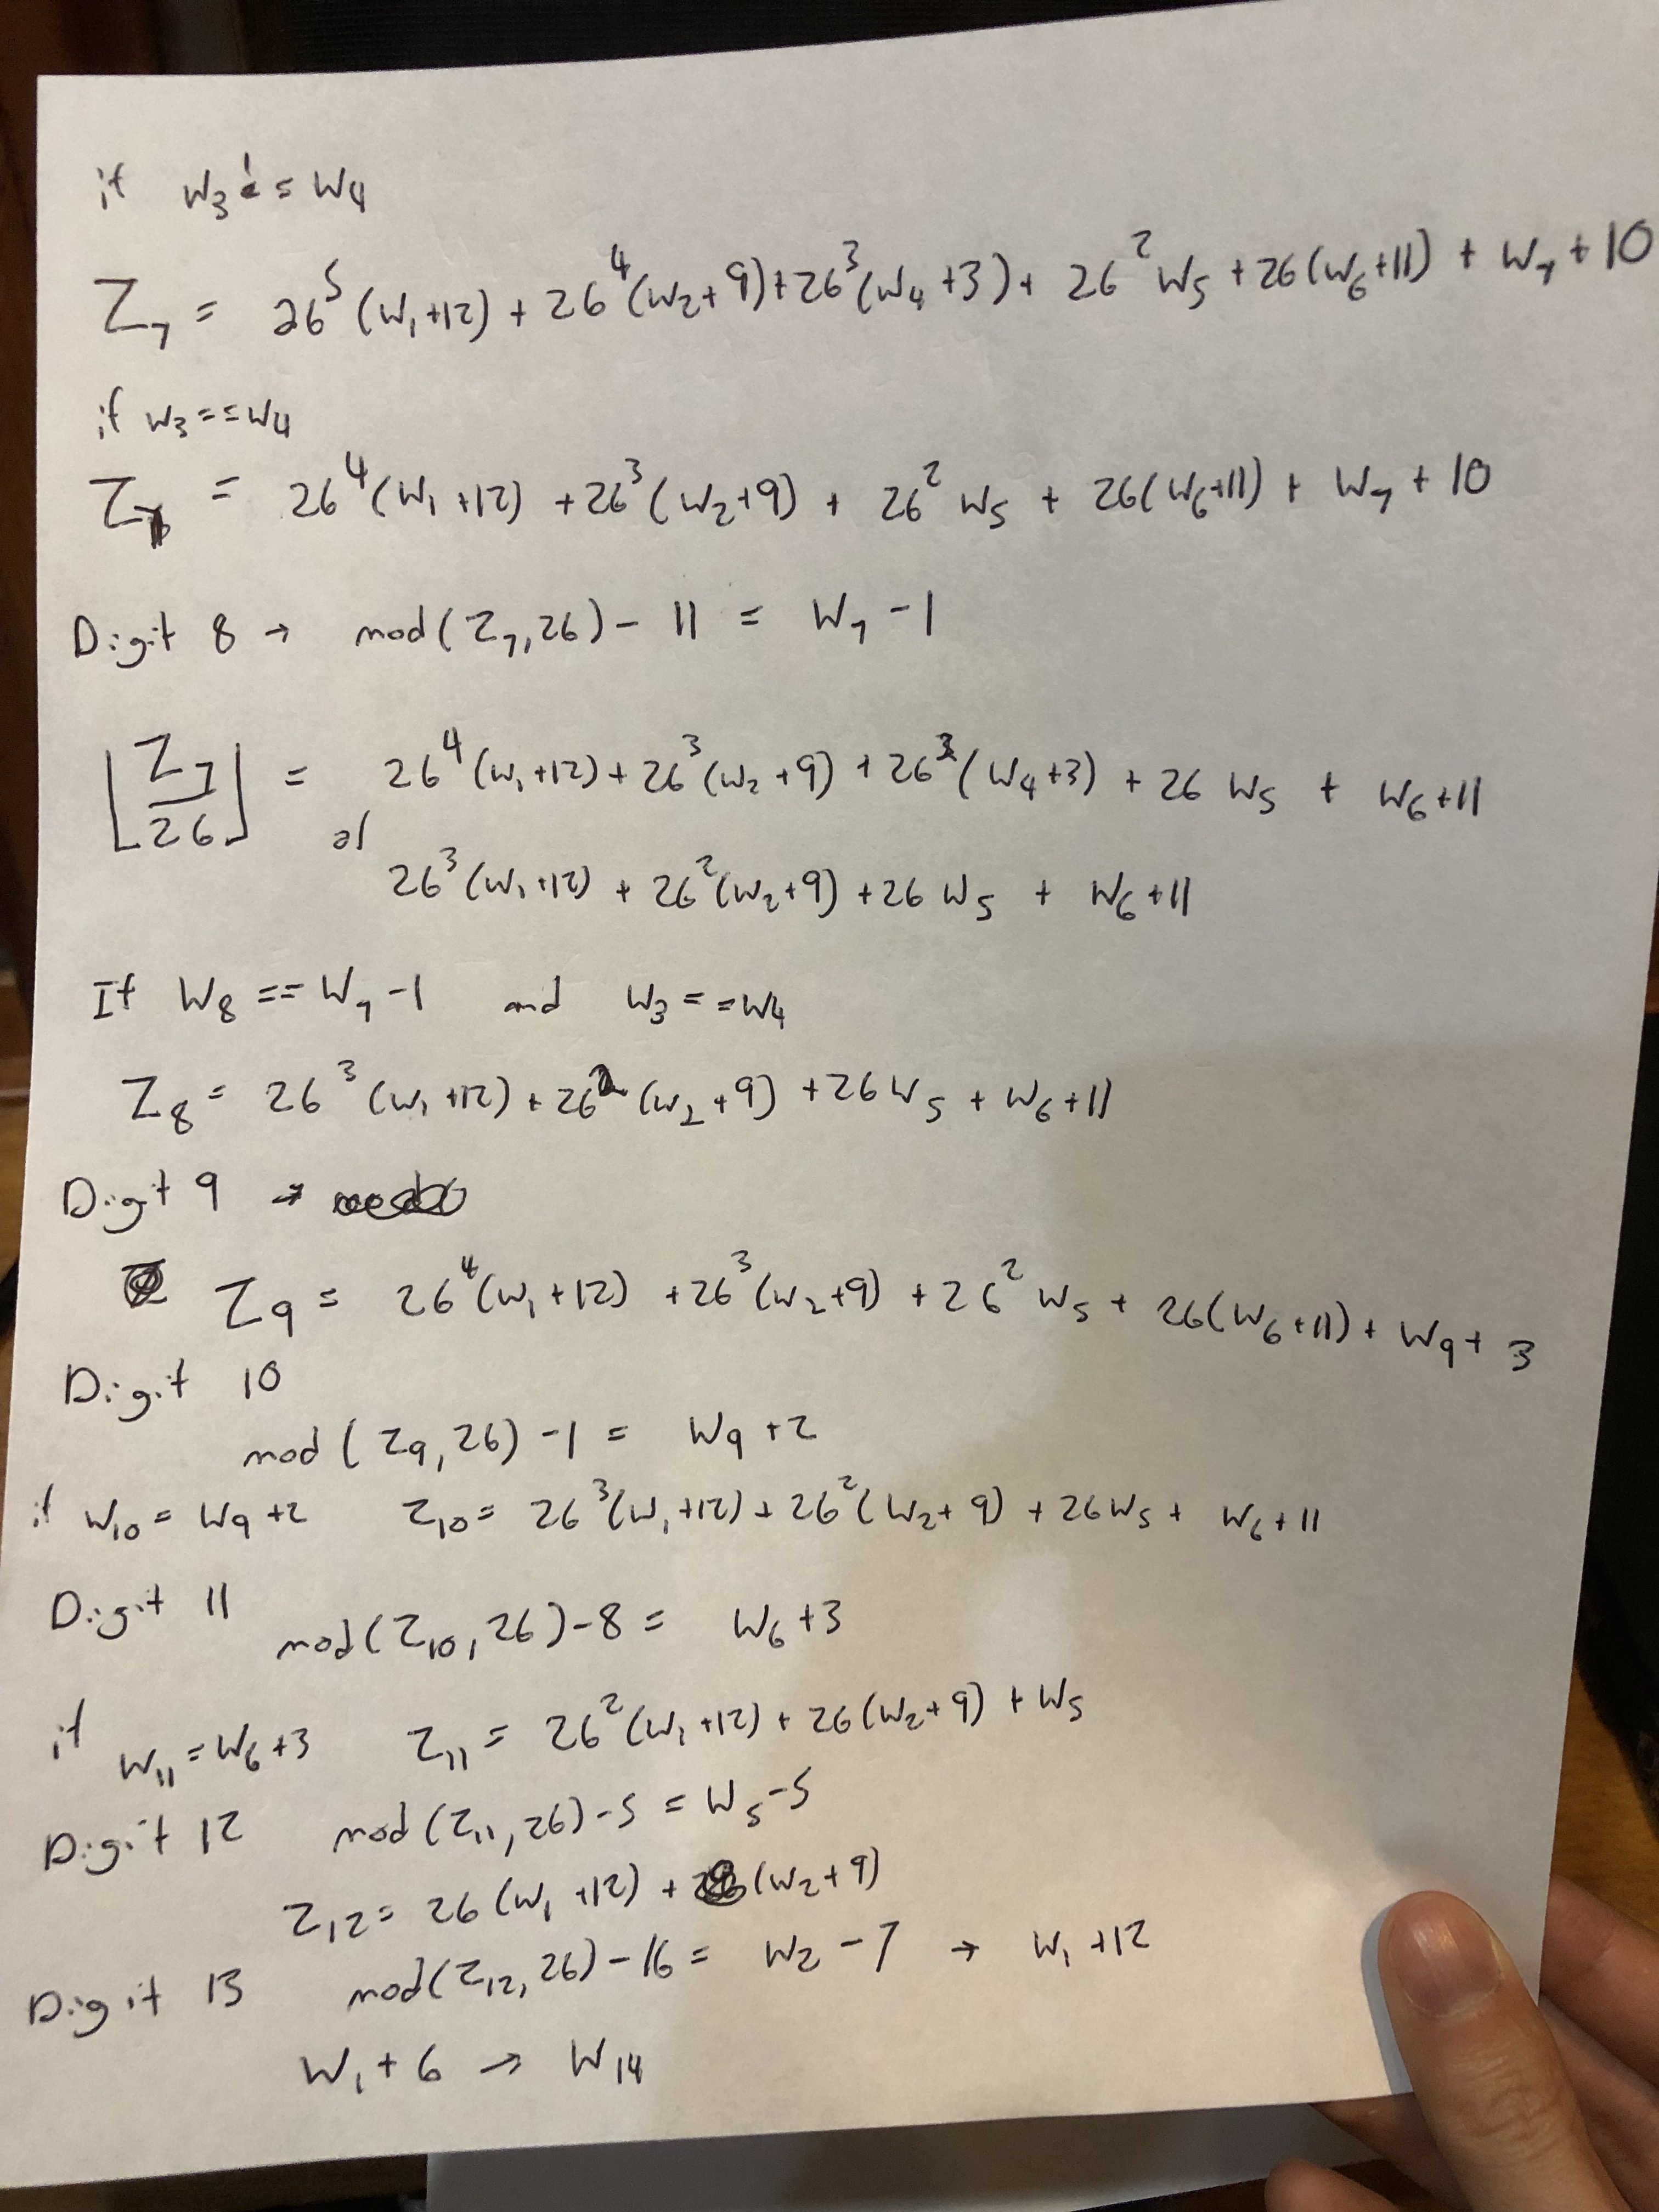 if w₃ != w₄
Z₇ = 26⁵(w₁+12) + 26⁴(w₂+9) + 26³(w₄+3) + 26² w₅ + 26(w₆+11) + w₇ + 10
if w₃ == w₄
Z₇ = 26⁴(w₁+12) + 26³(w₂+9) + 26² w₅ + 26(w₆+11) + w₇ + 10
Digit 8 → mod(Z₇, 26) - 11 = w₇ - 1
⌊Z₇/26⌋ = 26⁴(w₁+12) + 26³(w₂+9) + 26²(w₄+3) + 26 w₅ + w₆+11
or
26³(w₁+12) + 26²(w₂+9) + 26 w₅ + w₆+11
If w₈ == w₇ - 1 and w₃ == w₄
Z₈ = 26³(w₁+12) + 26²(w₂+9) + 26 w₅ + w₆+11
Digit 9 →
Z₉ = 26⁴(w₁+12) + 26³(w₂+9) + 26² w₅ + 26(w₆+11) + w₉ + 3
Digit 10
mod(Z₉, 26) - 1 = w₉ + 2
if w₁₀ = w₉ + 2 Z₁₀ = 26³(w₁+12) + 26²(w₂+9) + 26 w₅ + w₆ + 11
Digit 11 mod(Z₁₀, 26) - 8 = w₆ + 3
if w₁₁ = w₆ + 3 Z₁₁ = 26²(w₁+12) + 26(w₂+9) + w₅
Digit 12 mod(Z₁₁, 26) - 5 = w₅ - 5
Z₁₂ = 26(w₁+12) + (w₂+9)
Digit 13 mod(Z₁₂, 26) - 16 = w₂ - 7 → w₁ + 12
w₁ + 6 → w₁₄